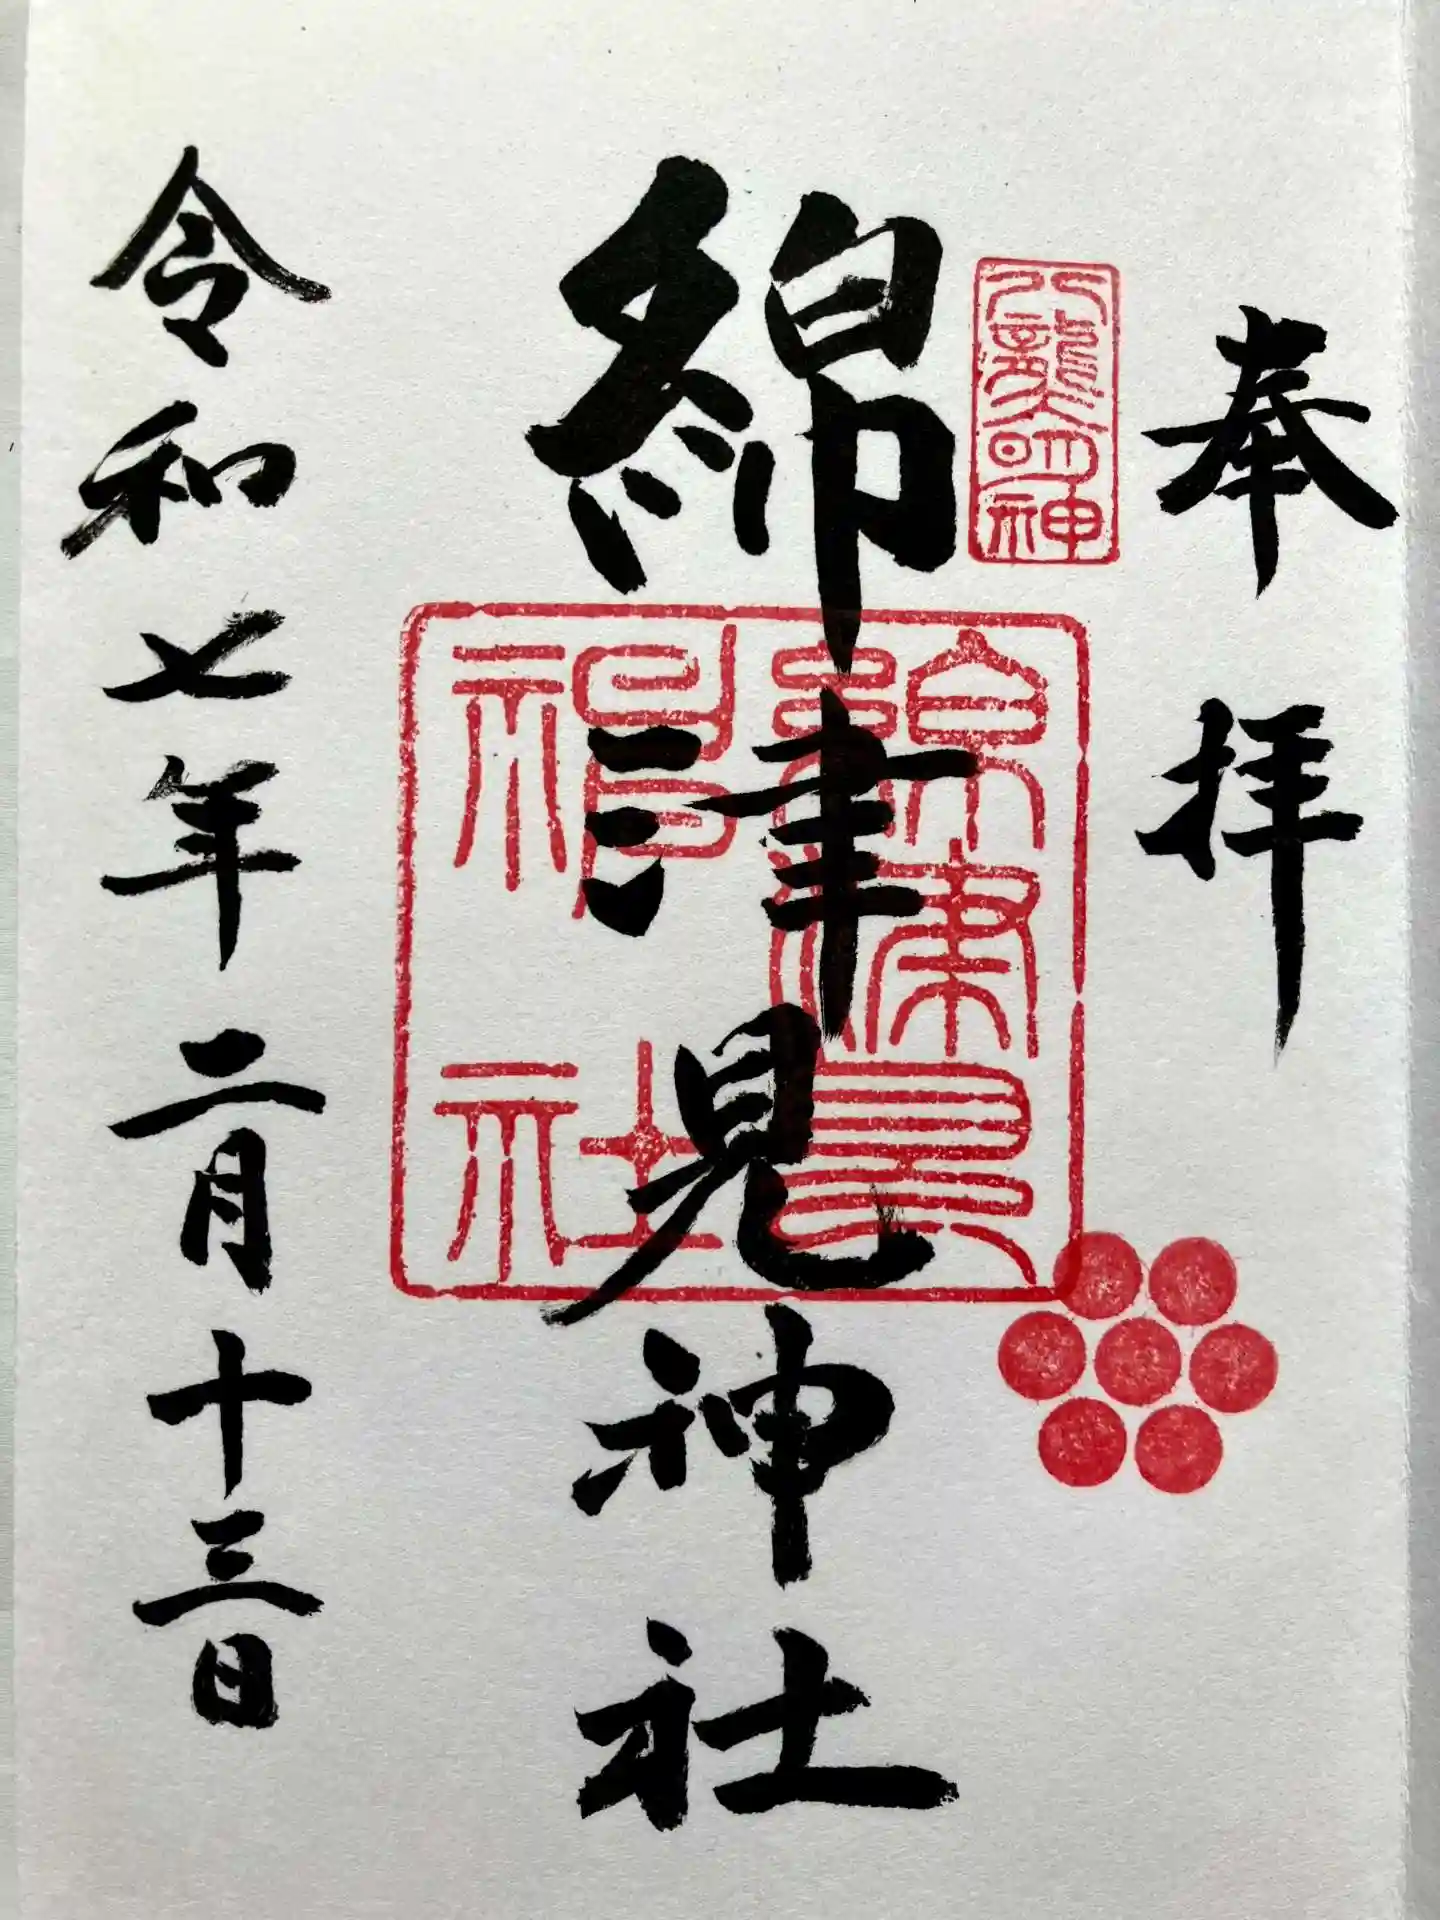 奉拝
八龍明神
綿津見神社
綿津見神社
令和七年二月十三日